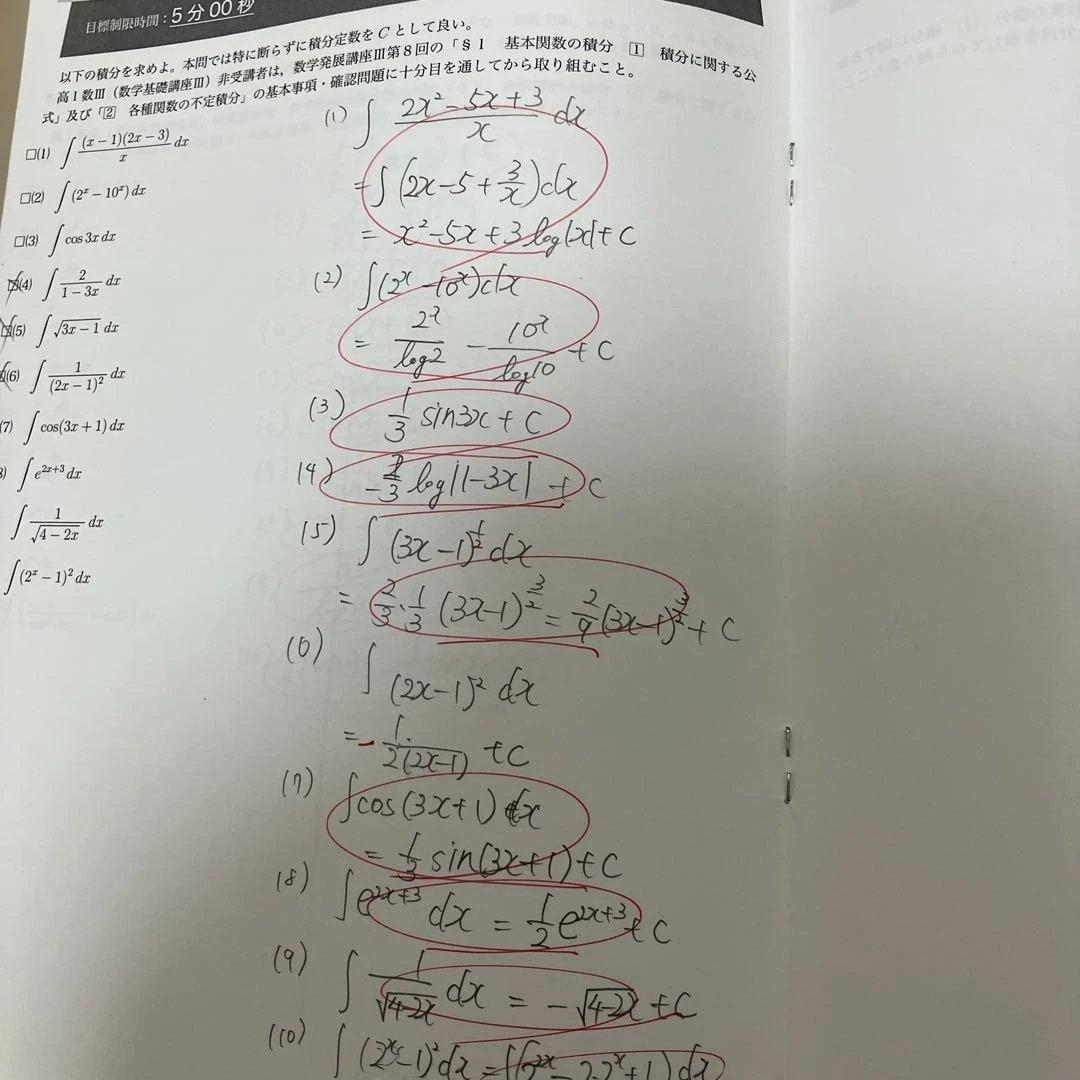 目標制限時間：5分00秒
以下の積分を求めよ。本問では特に断らずに積分定数をCとして良い。
高1数Ⅲ（数学基礎講座Ⅲ）非受講者は，数学発展講座Ⅲ第8回の「§1 基本関数の積分 1 積分に関する公
式」及び「2 各種関数の不定積分」の基本事項・確認問題に十分目を通してから取り組むこと。
□(1) ∫ (x−1)(2x−3)/x dx
□(2) ∫(2^x − 10^x) dx
□(3) ∫ cos 3x dx
□(4) ∫ 2/(1−3x) dx
□(5) ∫ √(3x−1) dx
□(6) ∫ 1/(2x−1)² dx
(7) ∫ cos(3x+1) dx
) ∫ e^(2x+3) dx
∫ 1/√(4−2x) dx
∫(2^x − 1)² dx
(1) ∫ (2x²−5x+3)/x dx
=∫(2x−5+3/x)dx
= x²−5x+3log|x|+C
(2) ∫(2^x−10^x)dx
= 2^x/log2 − 10^x/log10 + C
(3) 1/3 sin3x + C
(4) −2/3 log|1−3x| + C
(5) ∫(3x−1)^(1/2) dx
= 2/3·1/3 (3x−1)^(3/2) = 2/9 (3x−1)^(3/2) + C
(6) ∫ (2x−1)² dx
= − 1/2(2x−1) + C
(7) ∫cos(3x+1)dx
= 1/3 sin(3x+1)+C
(8) ∫e^(2x+3) dx = 1/2 e^(2x+3) + C
(9) ∫ 1/√(4−2x) dx = −√(4−2x) + C
(10) ∫(2^x−1)²dx=∫(2^(2x)−2·2^x+1)dx